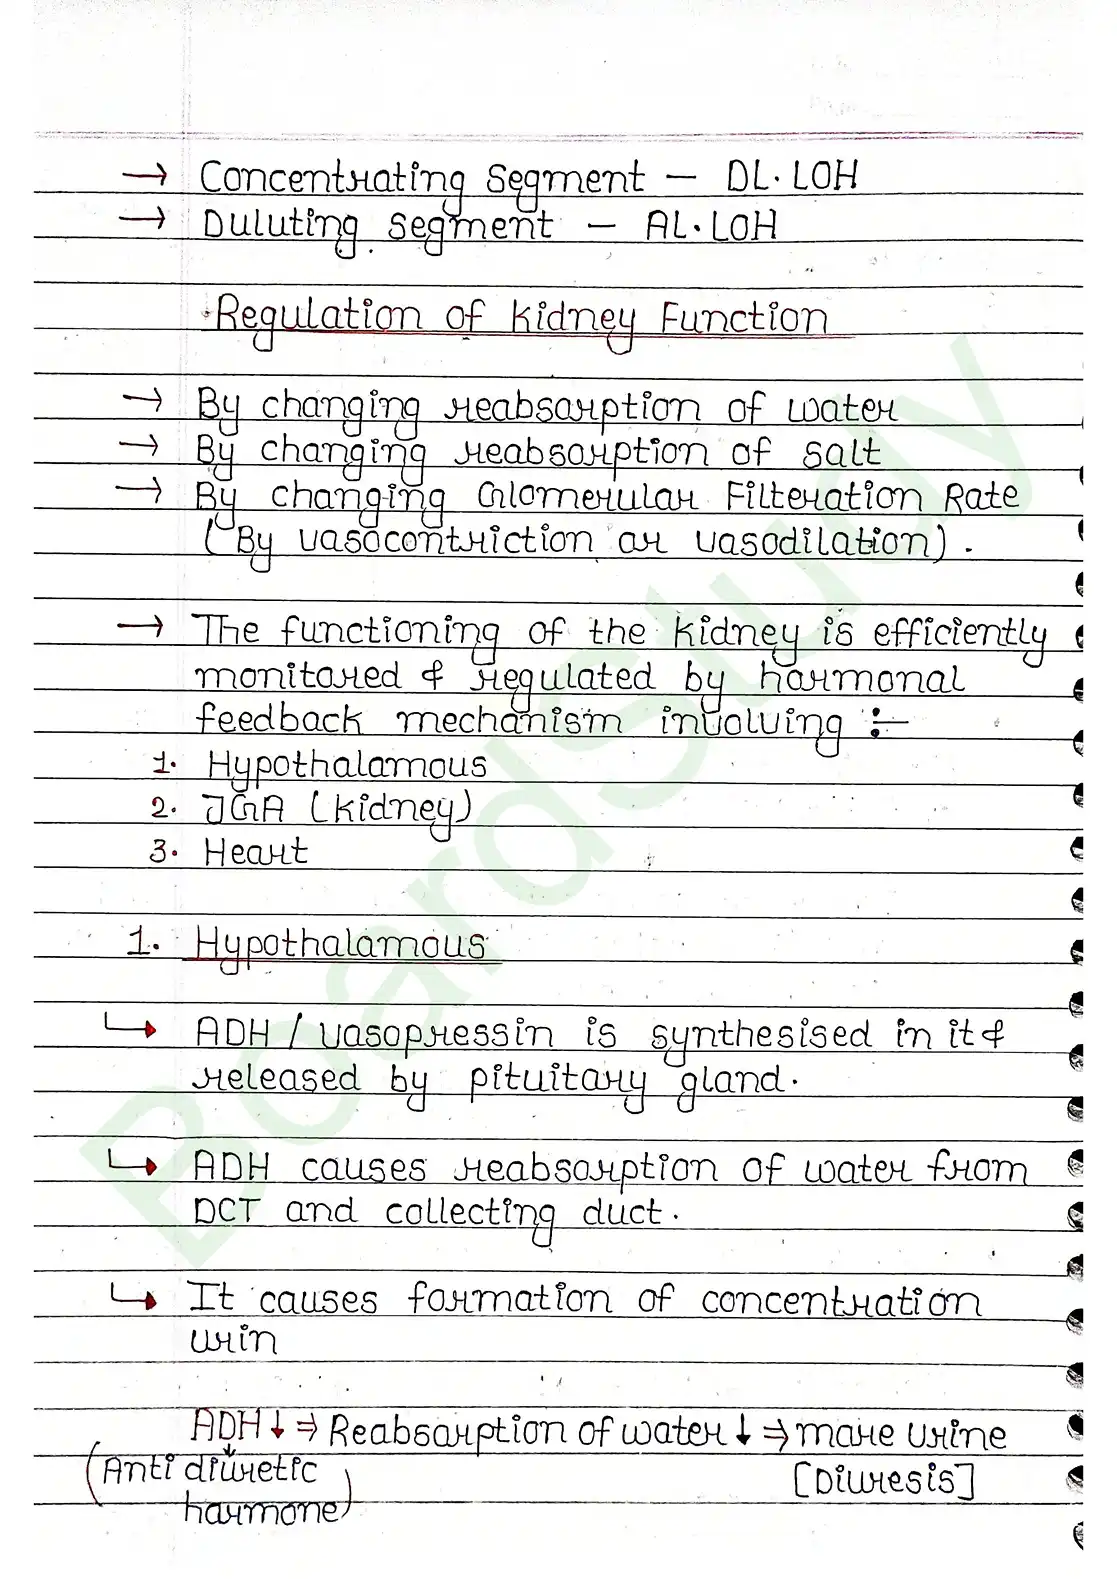 → Concentrating Segment – DL. LOH
→ Duluting segment – AL. LOH
Regulation of Kidney Function
→ By changing reabsorption of water
→ By changing reabsorption of salt
→ By changing Glomerular Filteration Rate
(By vasocontriction or vasodilation).
→ The functioning of the kidney is efficiently
monitored & regulated by hormonal
feedback mechanism involving :–
1. Hypothalamous
2. JGA (kidney)
3. Heart
1. Hypothalamous
↳ ADH / vasopressin is synthesised in it &
released by pituitary gland.
↳ ADH causes reabsorption of water from
DCT and collecting duct.
↳ It causes formation of concentration
urin
ADH↓ ⇒ Reabsorption of water ↓ ⇒ more urine
(Anti diuretic [Diuresis]
hormone)
BoardStudy